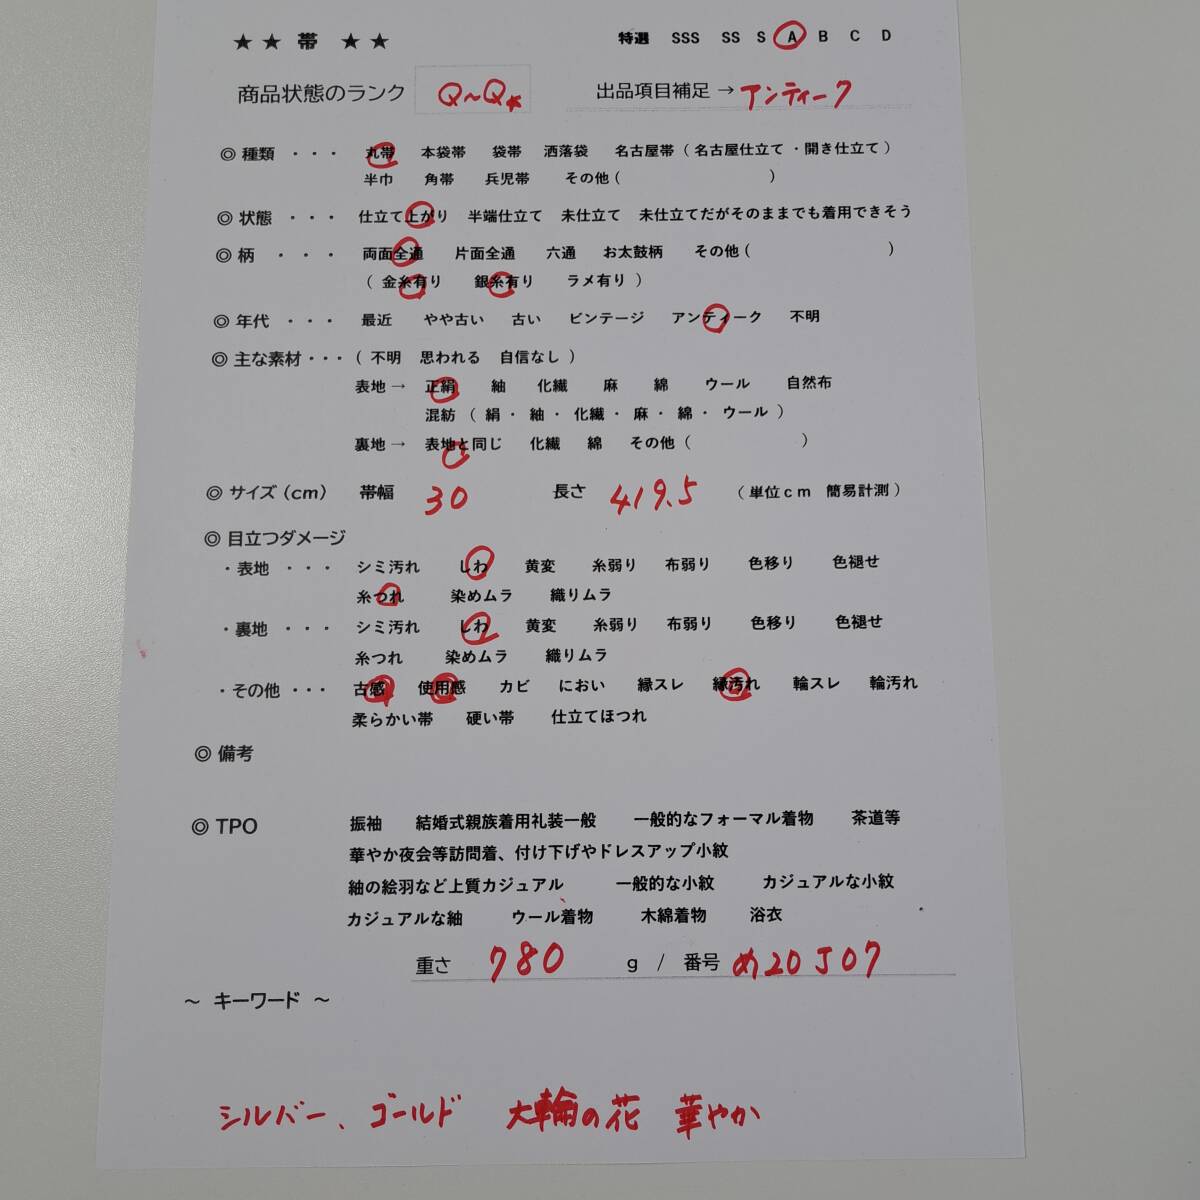 ★★ 帯 ★★
特選 SSS SS S A B C D
商品状態のランク Q~Q★
出品項目補足→アンティーク
◎ 種類 ・・・ 丸帯 本袋帯 袋帯 洒落袋 名古屋帯(名古屋仕立て・開き仕立て)
半巾 角帯 兵児帯 その他( )
◎ 状態 ・・・ 仕立て上がり 半端仕立て 未仕立て 未仕立てだがそのままでも着用できそう
◎ 柄 ・・・ 両面全通 片面全通 六通 お太鼓柄 その他( )
(金糸有り 銀糸有り ラメ有り)
◎ 年代 ・・・ 最近 やや古い 古い ビンテージ アンティーク 不明
◎ 主な素材・・・(不明 思われる 自信なし)
表地→ 正絹 紬 化繊 麻 綿 ウール 自然布
混紡(絹・紬・化繊・麻・綿・ウール)
裏地→ 表地と同じ 化繊 綿 その他( )
◎ サイズ(cm) 帯幅 30 長さ 419.5 (単位cm 簡易計測)
◎ 目立つダメージ
・表地 ・・・ シミ汚れ しわ 黄変 糸弱り 布弱り 色移り 色褪せ
糸つれ 染めムラ 織りムラ
・裏地 ・・・ シミ汚れ しわ 黄変 糸弱り 布弱り 色移り 色褪せ
糸つれ 染めムラ 織りムラ
・その他 ・・・ 古感 使用感 カビ におい 縁スレ 縁汚れ 輪スレ 輪汚れ
柔らかい帯 硬い帯 仕立てほつれ
◎ 備考
◎ TPO 振袖 結婚式親族着用礼装一般 一般的なフォーマル着物 茶道等
華やか夜会等訪問着、付け下げやドレスアップ小紋
紬の絵羽など上質カジュアル 一般的な小紋 カジュアルな小紋
カジュアルな紬 ウール着物 木綿着物 浴衣
重さ 780 g / 番号 め20J07
~ キーワード ~
シルバー、ゴールド 大輪の花 華やか